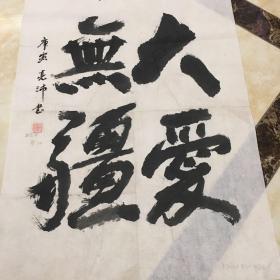 大愛
無疆
庚寅 亮沛 書